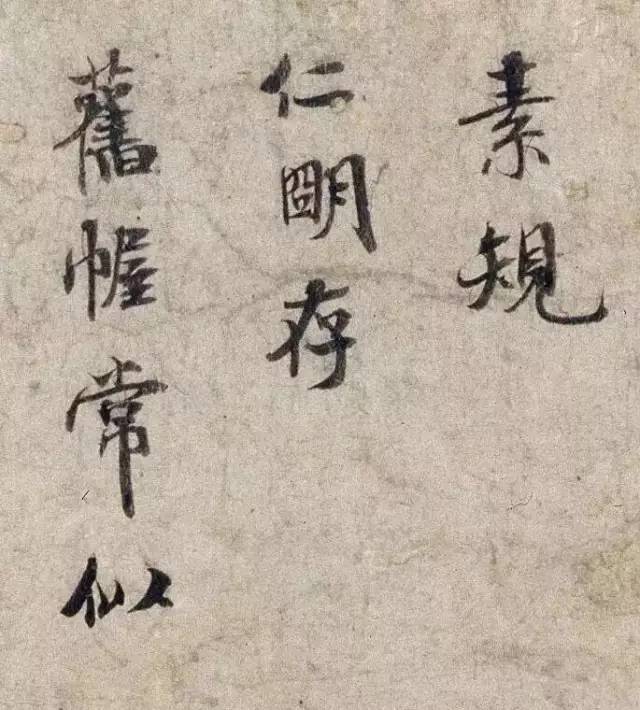 素規
仁朙存
舊幄常似